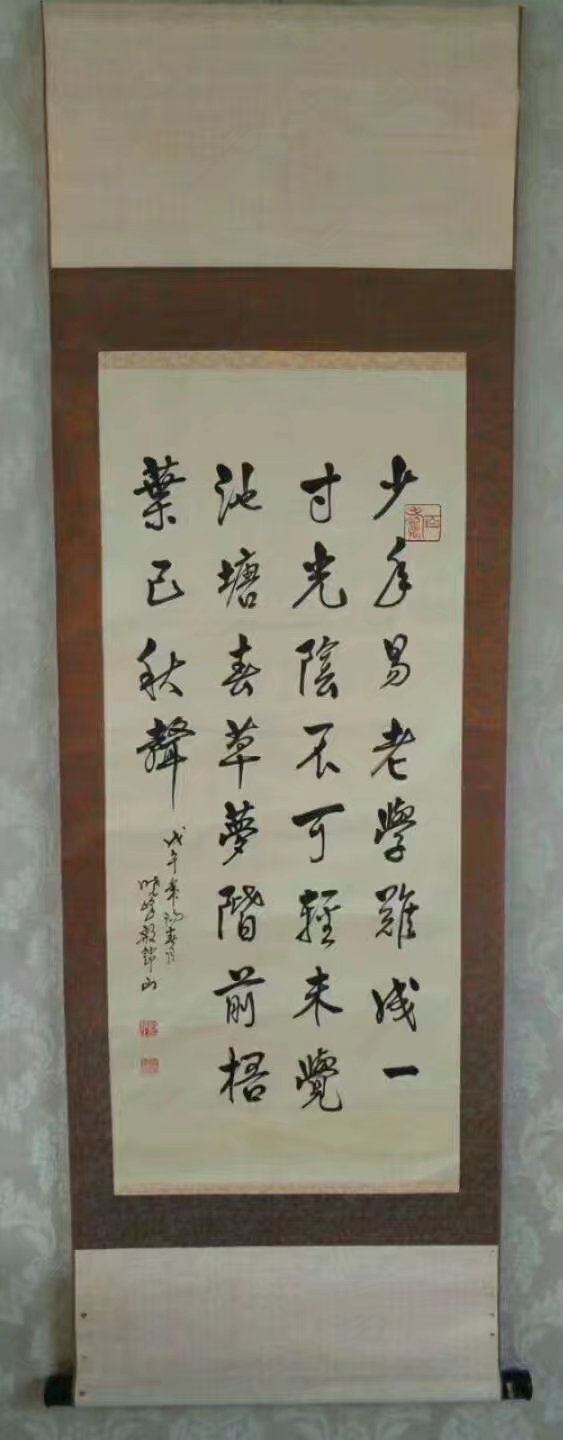 少年易老學難成一
寸光陰不可輕未覺
池塘春草夢階前梧
葉已秋聲
戊午年
山